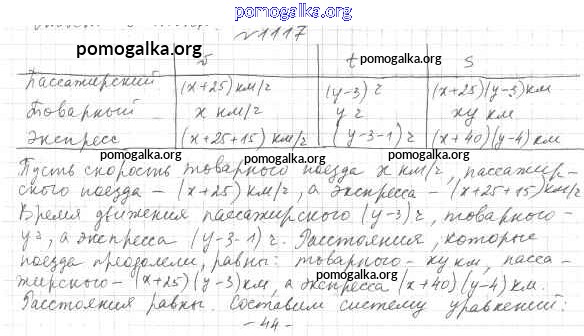 pomogalka.org
№1117
pomogalka.org
v t s
pomogalka.org
Пассажирский (x+25) км/ч (y-3) ч (x+25)(y-3) км
Товарный x км/ч y ч xy км
pomogalka.org
Экспресс (x+25+15) км/ч (y-3-1) ч (x+40)(y-4) км
pomogalka.org pomogalka.org
Пусть скорость товарного поезда x км/ч, пассажир-
ского поезда - (x+25) км/ч, а экспресса - (x+25+15) км/ч
pomogalka.org
Время движения пассажирского (y-3) ч, товарного -
y ч, а экспресса (y-3-1) ч. Расстояния, которые
pomogalka.org
поезда преодолели, равны: товарного - xy км, пасса-
pomogalka.org
жирского - (x+25)(y-3) км, а экспресса (x+40)(y-4) км.
pomogalka.org
Расстояния равны. Составим систему уравнений:
- 44 -